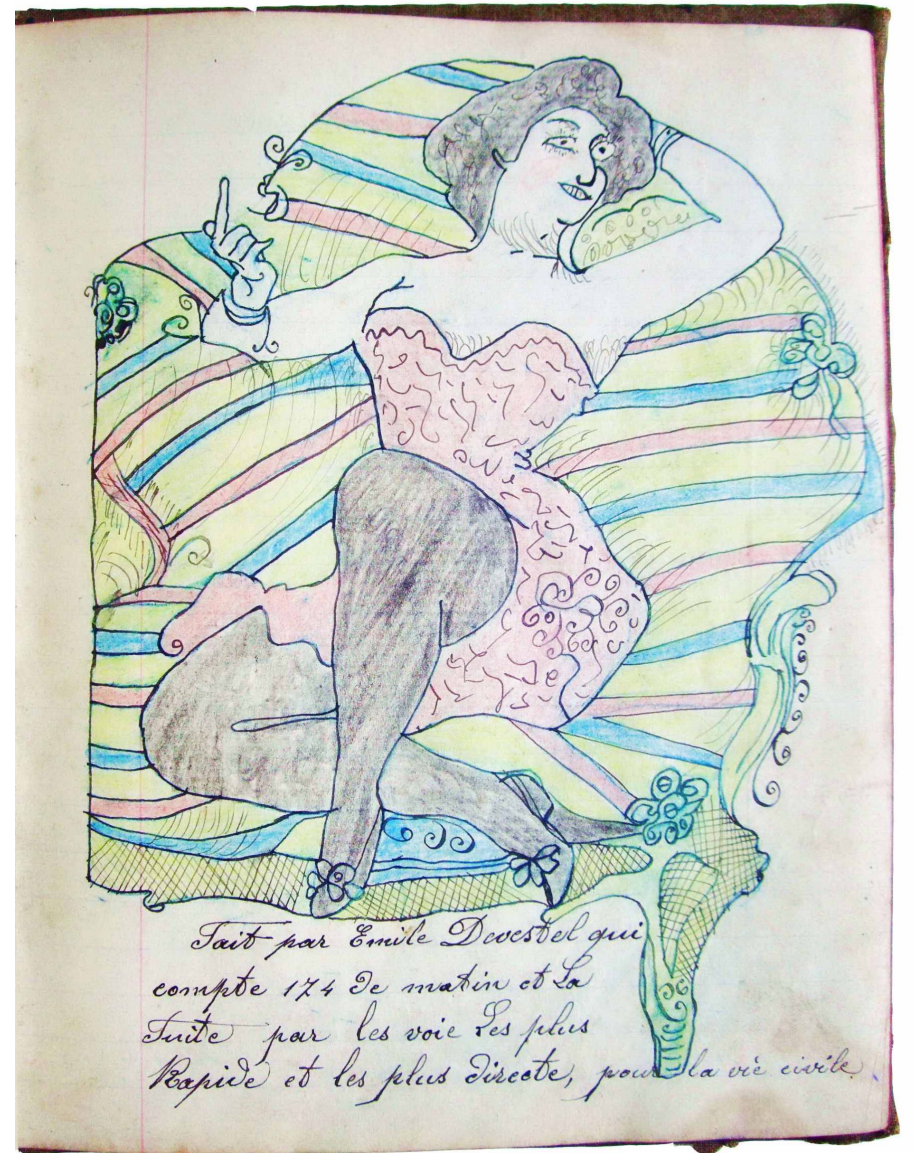 Fait par Emile Devestel qui
compte 174 de matin et La
Fuite par les voie Les plus
Rapide et les plus directe, pour la vie civile